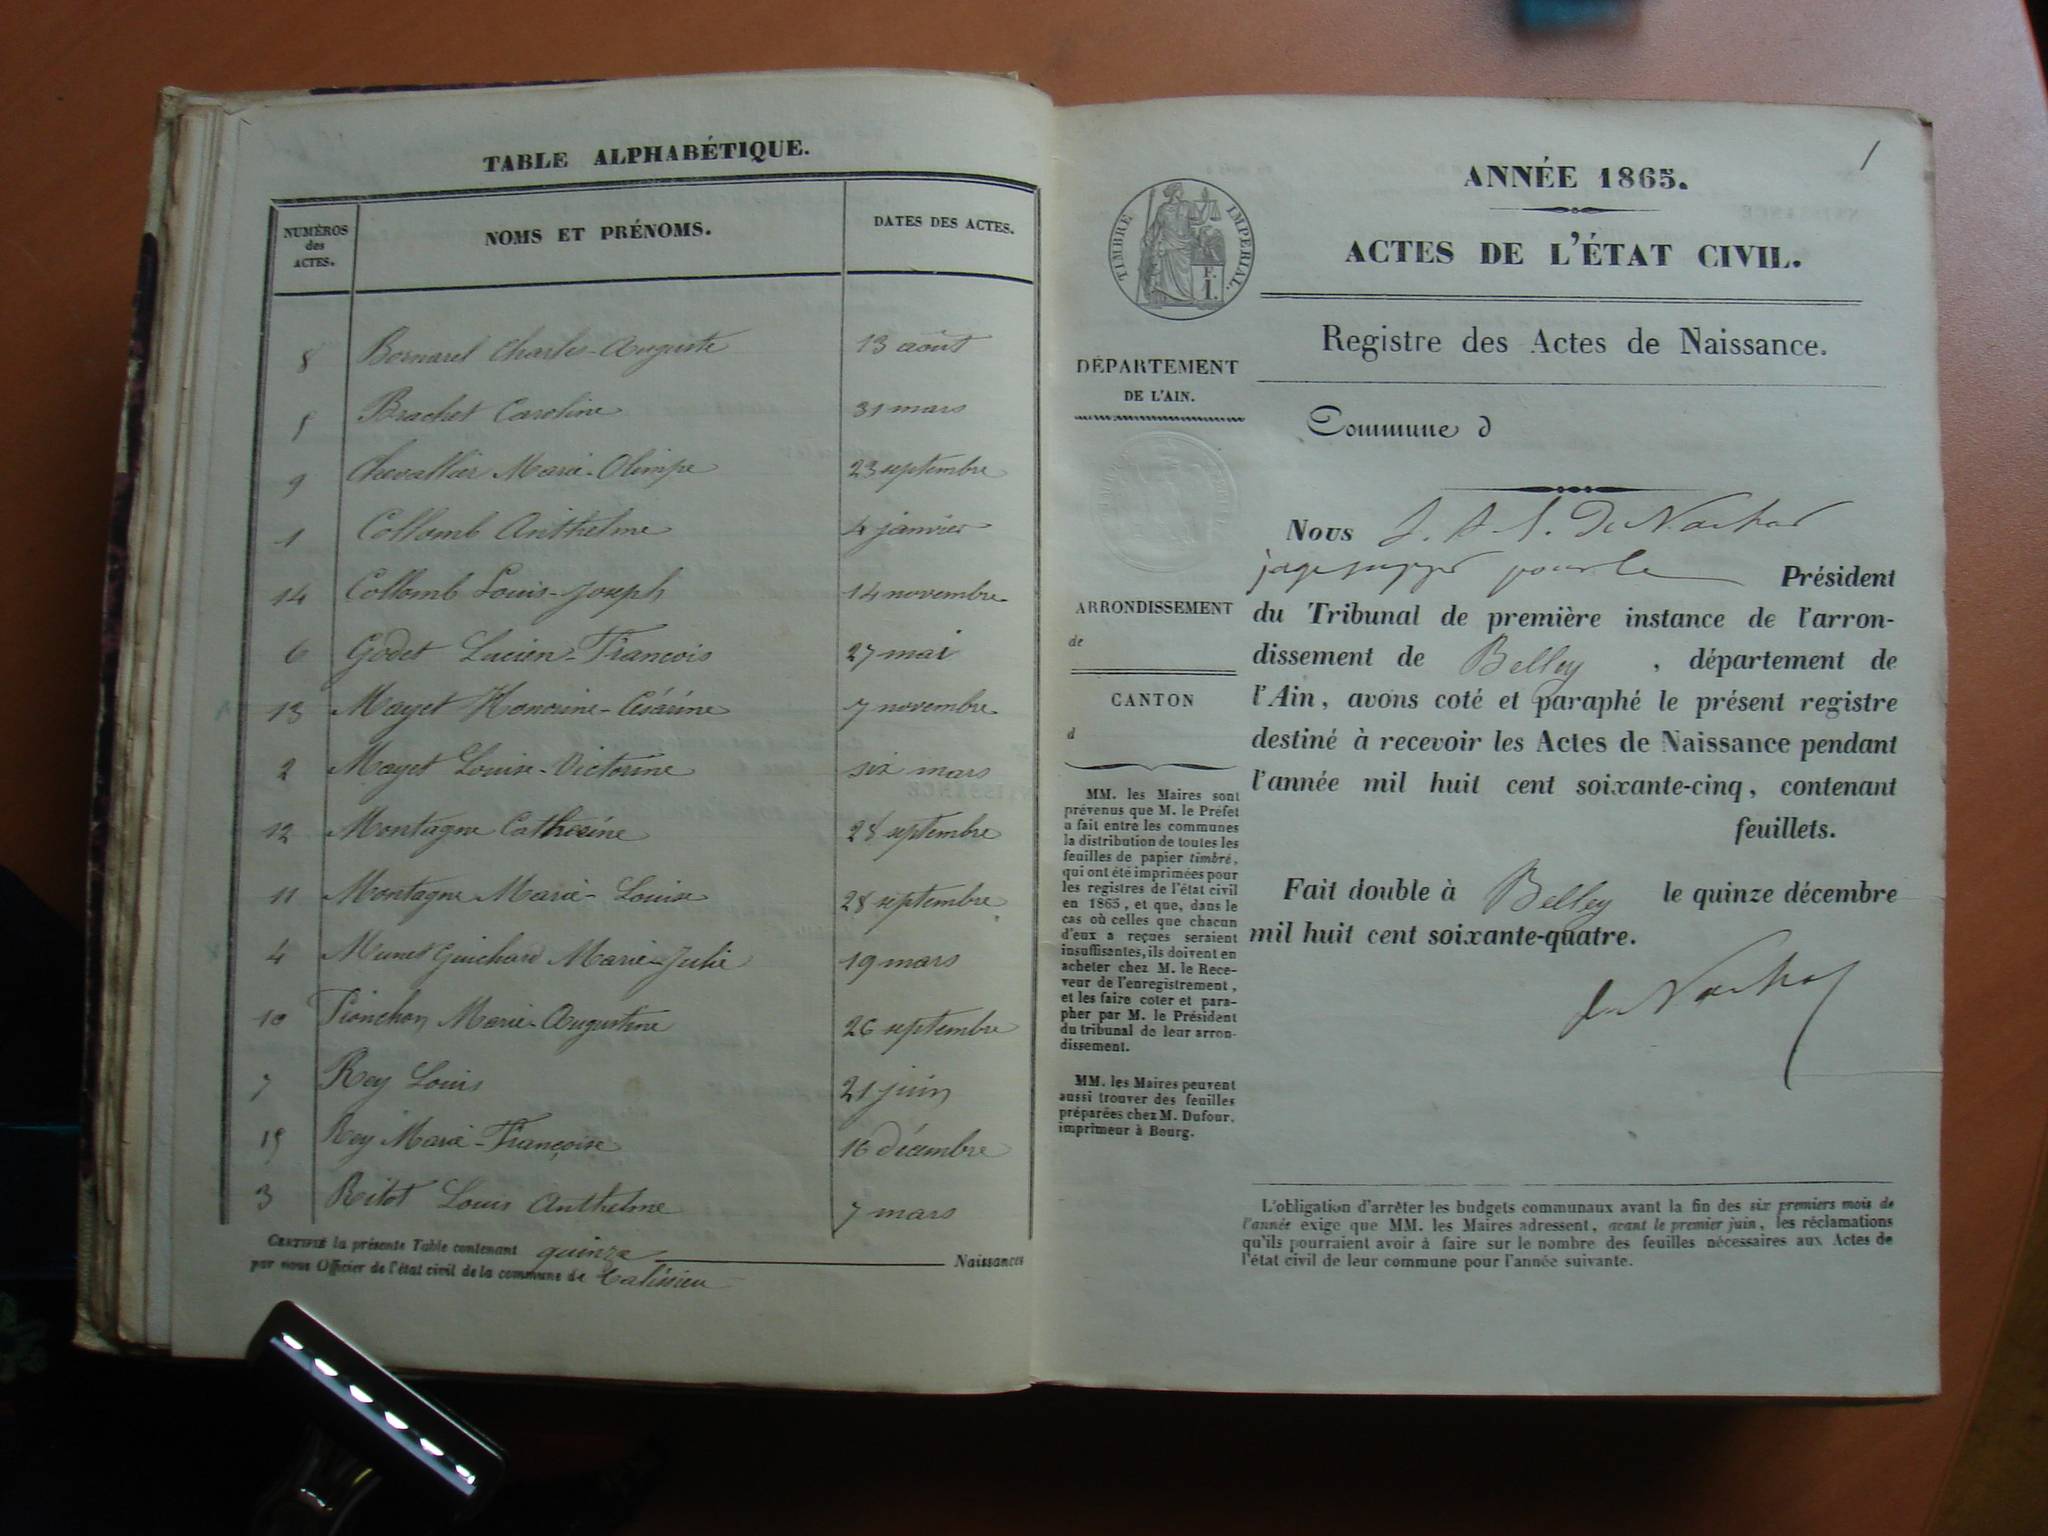 TABLE ALPHABÉTIQUE.
NUMÉROS
des
ACTES.
NOMS ET PRÉNOMS.
DATES DES ACTES.
8 Bornarel Charles-Auguste 13 août
5 Brachet Caroline 31 mars
9 Chevallier Marie-Olimpe 23 septembre
1 Collomb Anthelme 4 janvier
14 Collomb Louis-Joseph 14 novembre
6 Godet Lucien-François 27 mai
13 Mayet Honorine-Césarine 7 novembre
2 Mayet Louise-Victorine six mars
12 Montagne Catherine 28 septembre
11 Montagne Marie-Louise 28 septembre
4 Munet Guichard Marie-Julie 19 mars
10 Pionchon Marie-Augustine 26 septembre
7 Rey Louis 21 juin
15 Rey Marie-Françoise 16 décembre
3 Ritot Louis Anthelme 7 mars
CERTIFIÉ la présente Table contenant quinze Naissances
par nous Officier de l'état civil de la commune de Talissieu
1
ANNÉE 1865.
ACTES DE L'ÉTAT CIVIL.
Registre des Actes de Naissance.
Commune d
TIMBRE IMPERIAL.
E.
I.
DÉPARTEMENT
DE L'AIN.
ARRONDISSEMENT
de
CANTON
d
MM. les Maires sont
prévenus que M. le Préfet
a fait entre les communes
la distribution de toutes les
feuilles de papier timbré,
qui ont été imprimées pour
les registres de l'état civil
en 1865, et que, dans le
cas où celles que chacun
d'eux a reçues seraient
insuffisantes, ils doivent en
acheter chez M. le Rece-
veur de l'enregistrement,
et les faire coter et para-
pher par M. le Président
du tribunal de leur arron-
dissement.
MM. les Maires peuvent
aussi trouver des feuilles
préparées chez M. Dufour,
imprimeur à Bourg.
Nous
pour le Président
du Tribunal de première instance de l'arron-
dissement de Belley, département de
l'Ain, avons coté et paraphé le présent registre
destiné à recevoir les Actes de Naissance pendant
l'année mil huit cent soixante-cinq, contenant
feuillets.
Fait double à Belley le quinze décembre
mil huit cent soixante-quatre.
L'obligation d'arrêter les budgets communaux avant la fin des six premiers mois de
l'année exige que MM. les Maires adressent, avant le premier juin, les réclamations
qu'ils pourraient avoir à faire sur le nombre des feuilles nécessaires aux Actes de
l'état civil de leur commune pour l'année suivante.